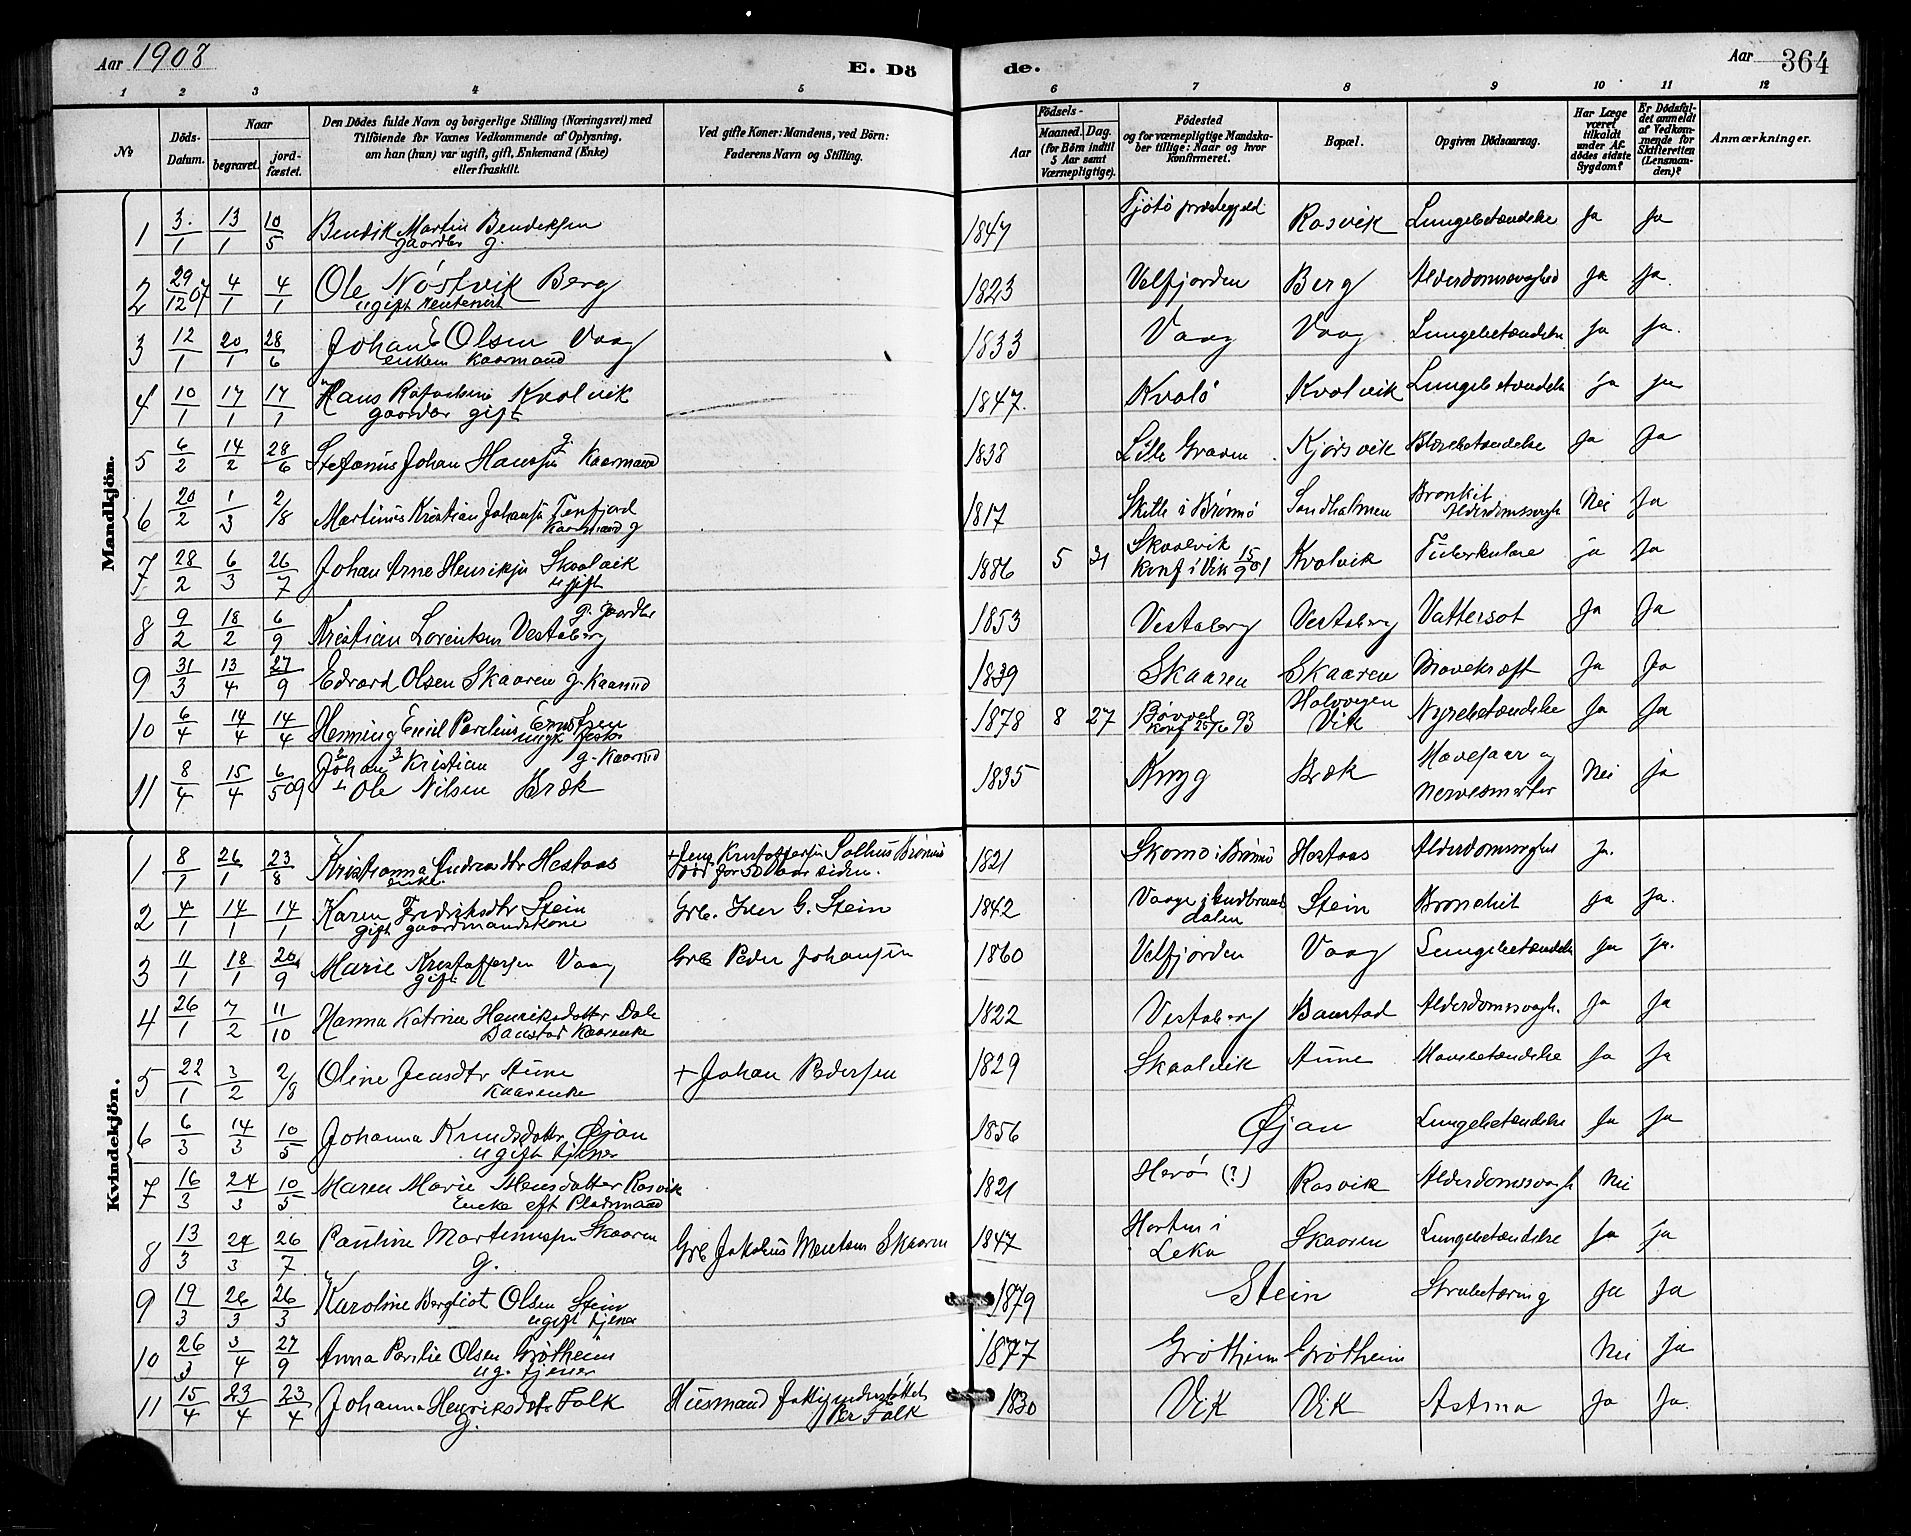 Aar 1908
E. Dö
de.
Aar 364
1 2 3 4 5 6 7 8 9 10 11 12
No
Döds-Datum.
Naar
begravet.
jord-fæstet.
Den Dödes fulde Navn og borgerlige Stilling (Næringsvei) med
Tilföiende for Voxnes Vedkommende af Oplysning,
om han (hun) var ugift, gift, Enkemand (Enke)
eller fraskilt.
Ved gifte Koner: Mandens, ved Börn:
Faderens Navn og Stilling.
Födsels-
Aar
Maaned. Dag.
(for Börn indtil
5 Aar samt
Værnepligtige).
Födested
og for værnepligtige Mandska-
ber tillige: Naar og hvor
konfirmeret.
Bopæl.
Opgiven Dödsaarsag.
Har Læge
været
tilkaldt
under Af-
dödes sidste
Sygdom?
Er Dödsfal-
det anmeldt
af Vedkom-
mende for
Skifteretten
(Lensman-
den)?
Anmærkninger.
Mandkjön.
1 3/1 13/1 10/5 Bendik Martin Bendiksen gaardbr g. 1847 Tjötö præstegjeld Rosvik Lungebetændelse Ja Ja
2 29/12 07 4/1 4/1 Ole Nöstvik Berg ugift Rentenist 1823 Velfjorden Berg Alderdomssvaghed Ja Ja.
3 12/1 20/1 28/6 Johan E Olsen Vaag enkem kaarmand 1833 Vaag Vaag Lungebetændelse Ja Ja.
4 10/1 17/1 17/1 Hans Rafaelsen Kvalvik gaardbr gift 1847. Kvalö Kvalvik Lungebetændelse ja ja
5 6/2 14/2 28/6 Stefanus Johan Hanssen g. Kaarmand 1838 Lille Graven Kjørsvik Blærebetændelse Ja Ja
6 20/2 1/3 2/8 Martinus Kristian Johansen Tenfjord Kaarmand g 1817 Skille i Brønnø Sandholmen Bronkit Alderdomssvagh Nei Ja
7 28/2 6/3 26/7 Johan Arne Henriksen Skaalvik ugift 1886 5 31 Skaalvik konf i Vik 15/9 01 Kvalvik Tuberkulose ja Ja
8 9/2 18/2 6/9 Kristian Lorentsen Vestaberg g. gaardbr 1853 Vestaberg Vestaberg Vattersot Ja Ja
9 31/3 13/4 27/9 Edvard Olsen Skaaren g. Kaarmd 1839 Skaaren Skaaren Mavekræft Ja Ja
10 6/4 14/4 14/4 Henning Emil Parelius Ernstsen ungk 1878 8 27 Bövvel konf 25/6 93 Halsvegen Vik Nyrebetændelse Ja Ja
11 8/4 15/4 6/5 09 Johan Kristian g. Kaarmd Ole Nilsen Bræk 1835 Knyg Bræk Mavesaar og nervesmerter Nei ja
Kvindekjön.
1 8/1 26/1 23/8 Kristianna Andreasdtr Hestaas enke. + Jens Kristoffersen Salhus Brönnö Död for 50 Aar siden. 1821 Skomo i Brönnö Hestaas Alderdomssvaghed ja.
2 4/1 14/1 14/1 Karen Fredriksdtr Stein gift gaardmandskone Grb. Iver G. Stein 1842 Vaage i Gudbrandsdalen Stein Bronchit ja Ja.
3 11/1 18/1 20/9 Marie Kristoffersen Vaag gift Grb Peder Johansen 1860 Velfjorden Vaag Lungebetændelse Ja Ja.
4 26/1 7/2 11/10 Hanna Katrine Henriksdatter Dale Baustad kaarenke 1822 Vestaberg Baustad Alderdomssvagh. Ja Ja
5 22/1 3/2 2/8 Oline Jensdtr Aune Kaarenke + Johan Pedersen 1829 Skaalvik Aune Mavebetændelse Ja Ja
6 6/3 14/3 10/5 Johanna Knudsdatter Øjan ugift tjener 1856 Øjan Lungebetændelse Ja Ja
7 16/3 24/3 10/5 Maren Marie Mensdatter Rosvik Encke eft Pladsmand 1821 Herö (?) Rosvik Alderdomssvagh Nei
8 13/3 24/3 26/7 Pauline Martinusen Skaaren g. Grb Jakobus Mentsen Skaaren 1847 Horten i Leka Skaaren Lungebetændelse Ja ja
9 19/3 26/3 26/3 Karoline Bergliot Olsen Stein ugift tjener 1879 Stein Strubetæring Ja Ja
10 26/3 3/4 27/9 Anna Perilie Olsen Grötheim ug. tjener 1877 Grötheim Grötheim Nei Ja
11 15/4 23/4 23/4 Johanna Henriksdtr Falk g. Husmand fattigunderstöttet Per Falk 1830 Vik Vik Astma Ja Ja.